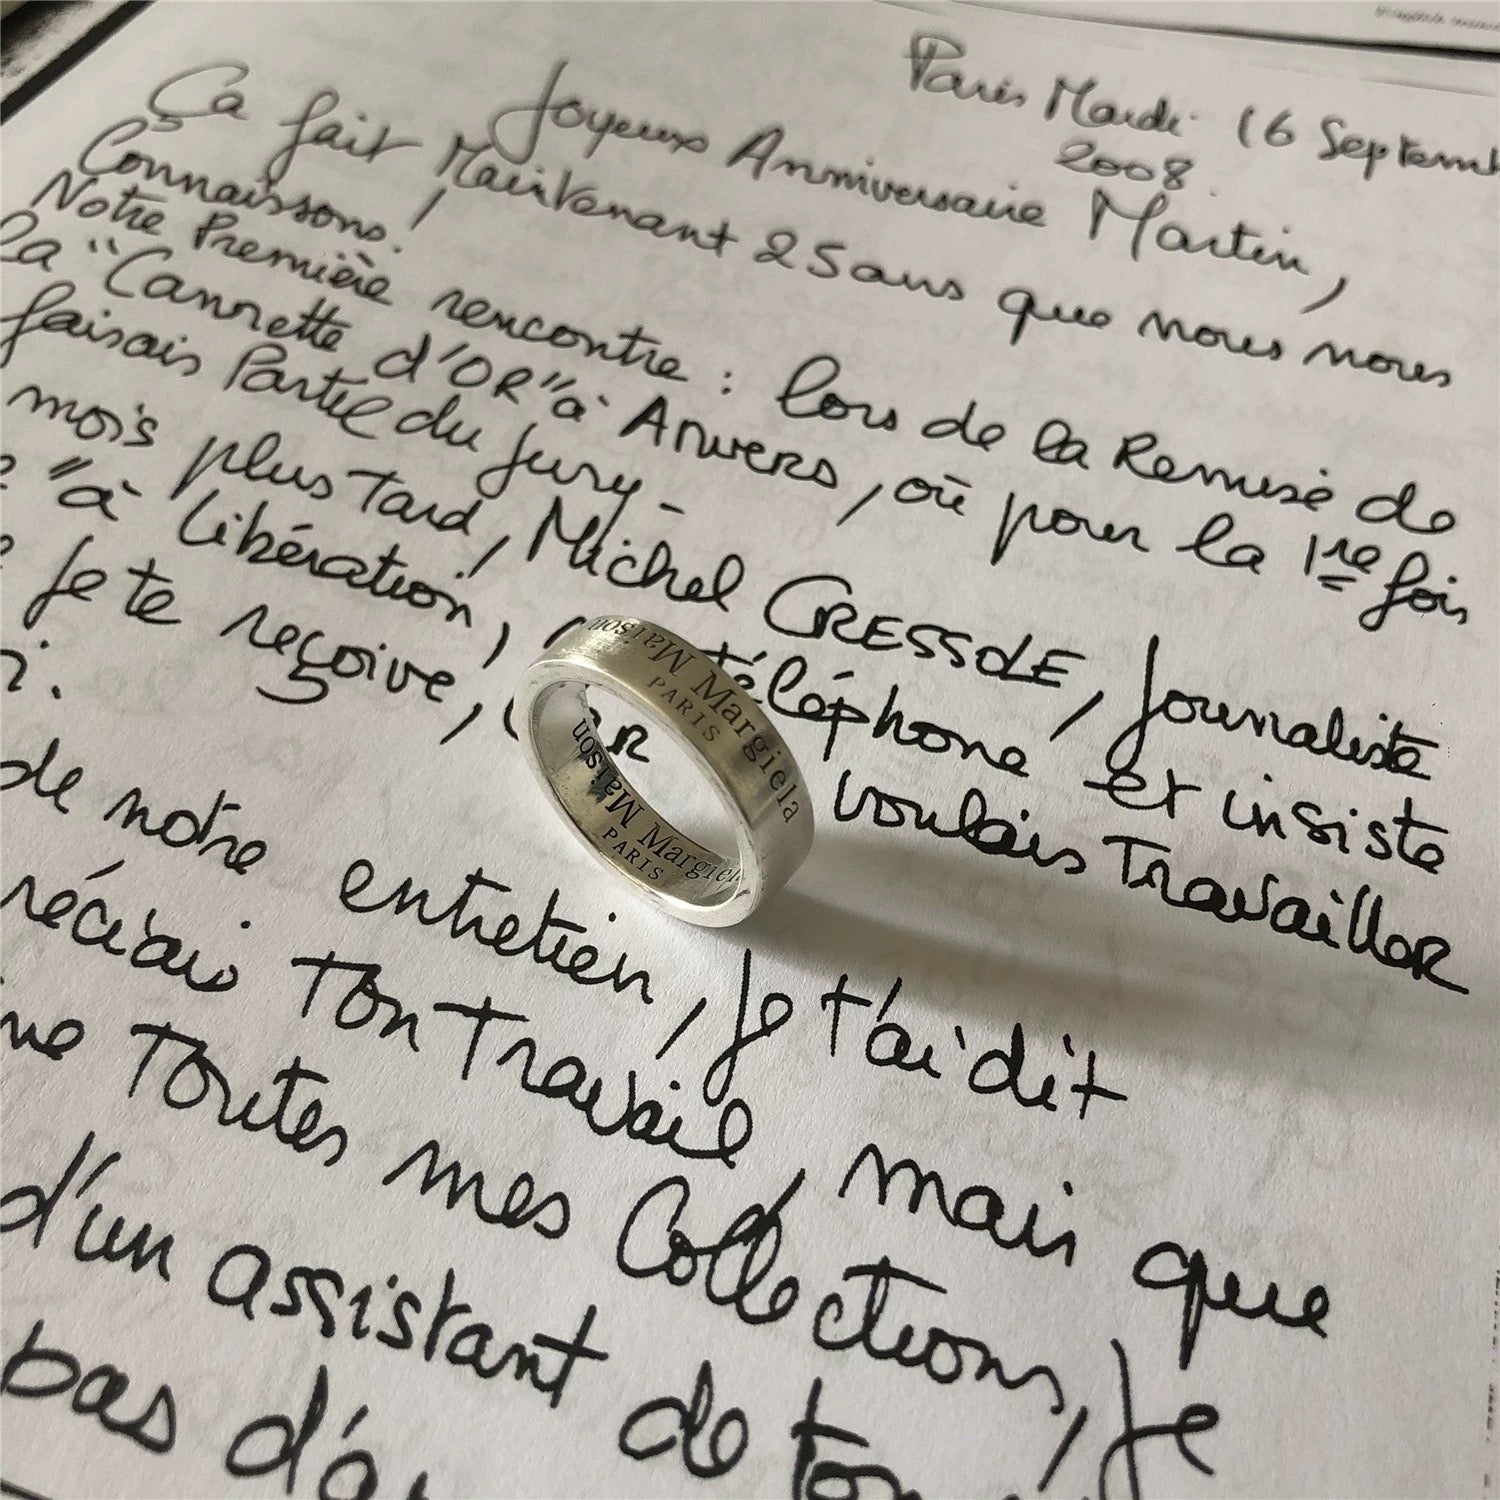 Paris Mardi 16 Septemb
2008.
Joyeux Anniversaire Martin,
Ça fait Maintenant 25 ans que nous nous
Connaissons!
Notre Première rencontre : lors de la Remise de
la "Cannette d'OR" à Anvers, où pour la 1re fois
faisais Partie du jury -
mois plus tard, Michel CRESSOLE, Journaliste
" à Libération, téléphone et insiste
je te reçoive, voulais Travailler
i.
de notre entretien, je t'ai dit
réciais Ton Travail, mais que
me Toutes mes Collections, je
d'un assistant de ton
bas d'a
Maison Margiela
PARIS
Maison Margiela
PARIS